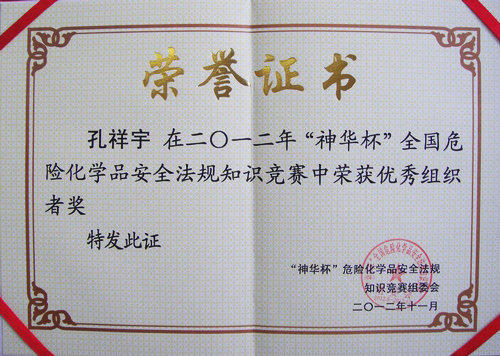 荣誉证书
孔祥宇 在二〇一二年“神华杯”全国危
险化学品安全法规知识竞赛中荣获优秀组织
者奖
特发此证
“神华杯”危险化学品安全法规
知识竞赛组委会
二〇一二年十一月